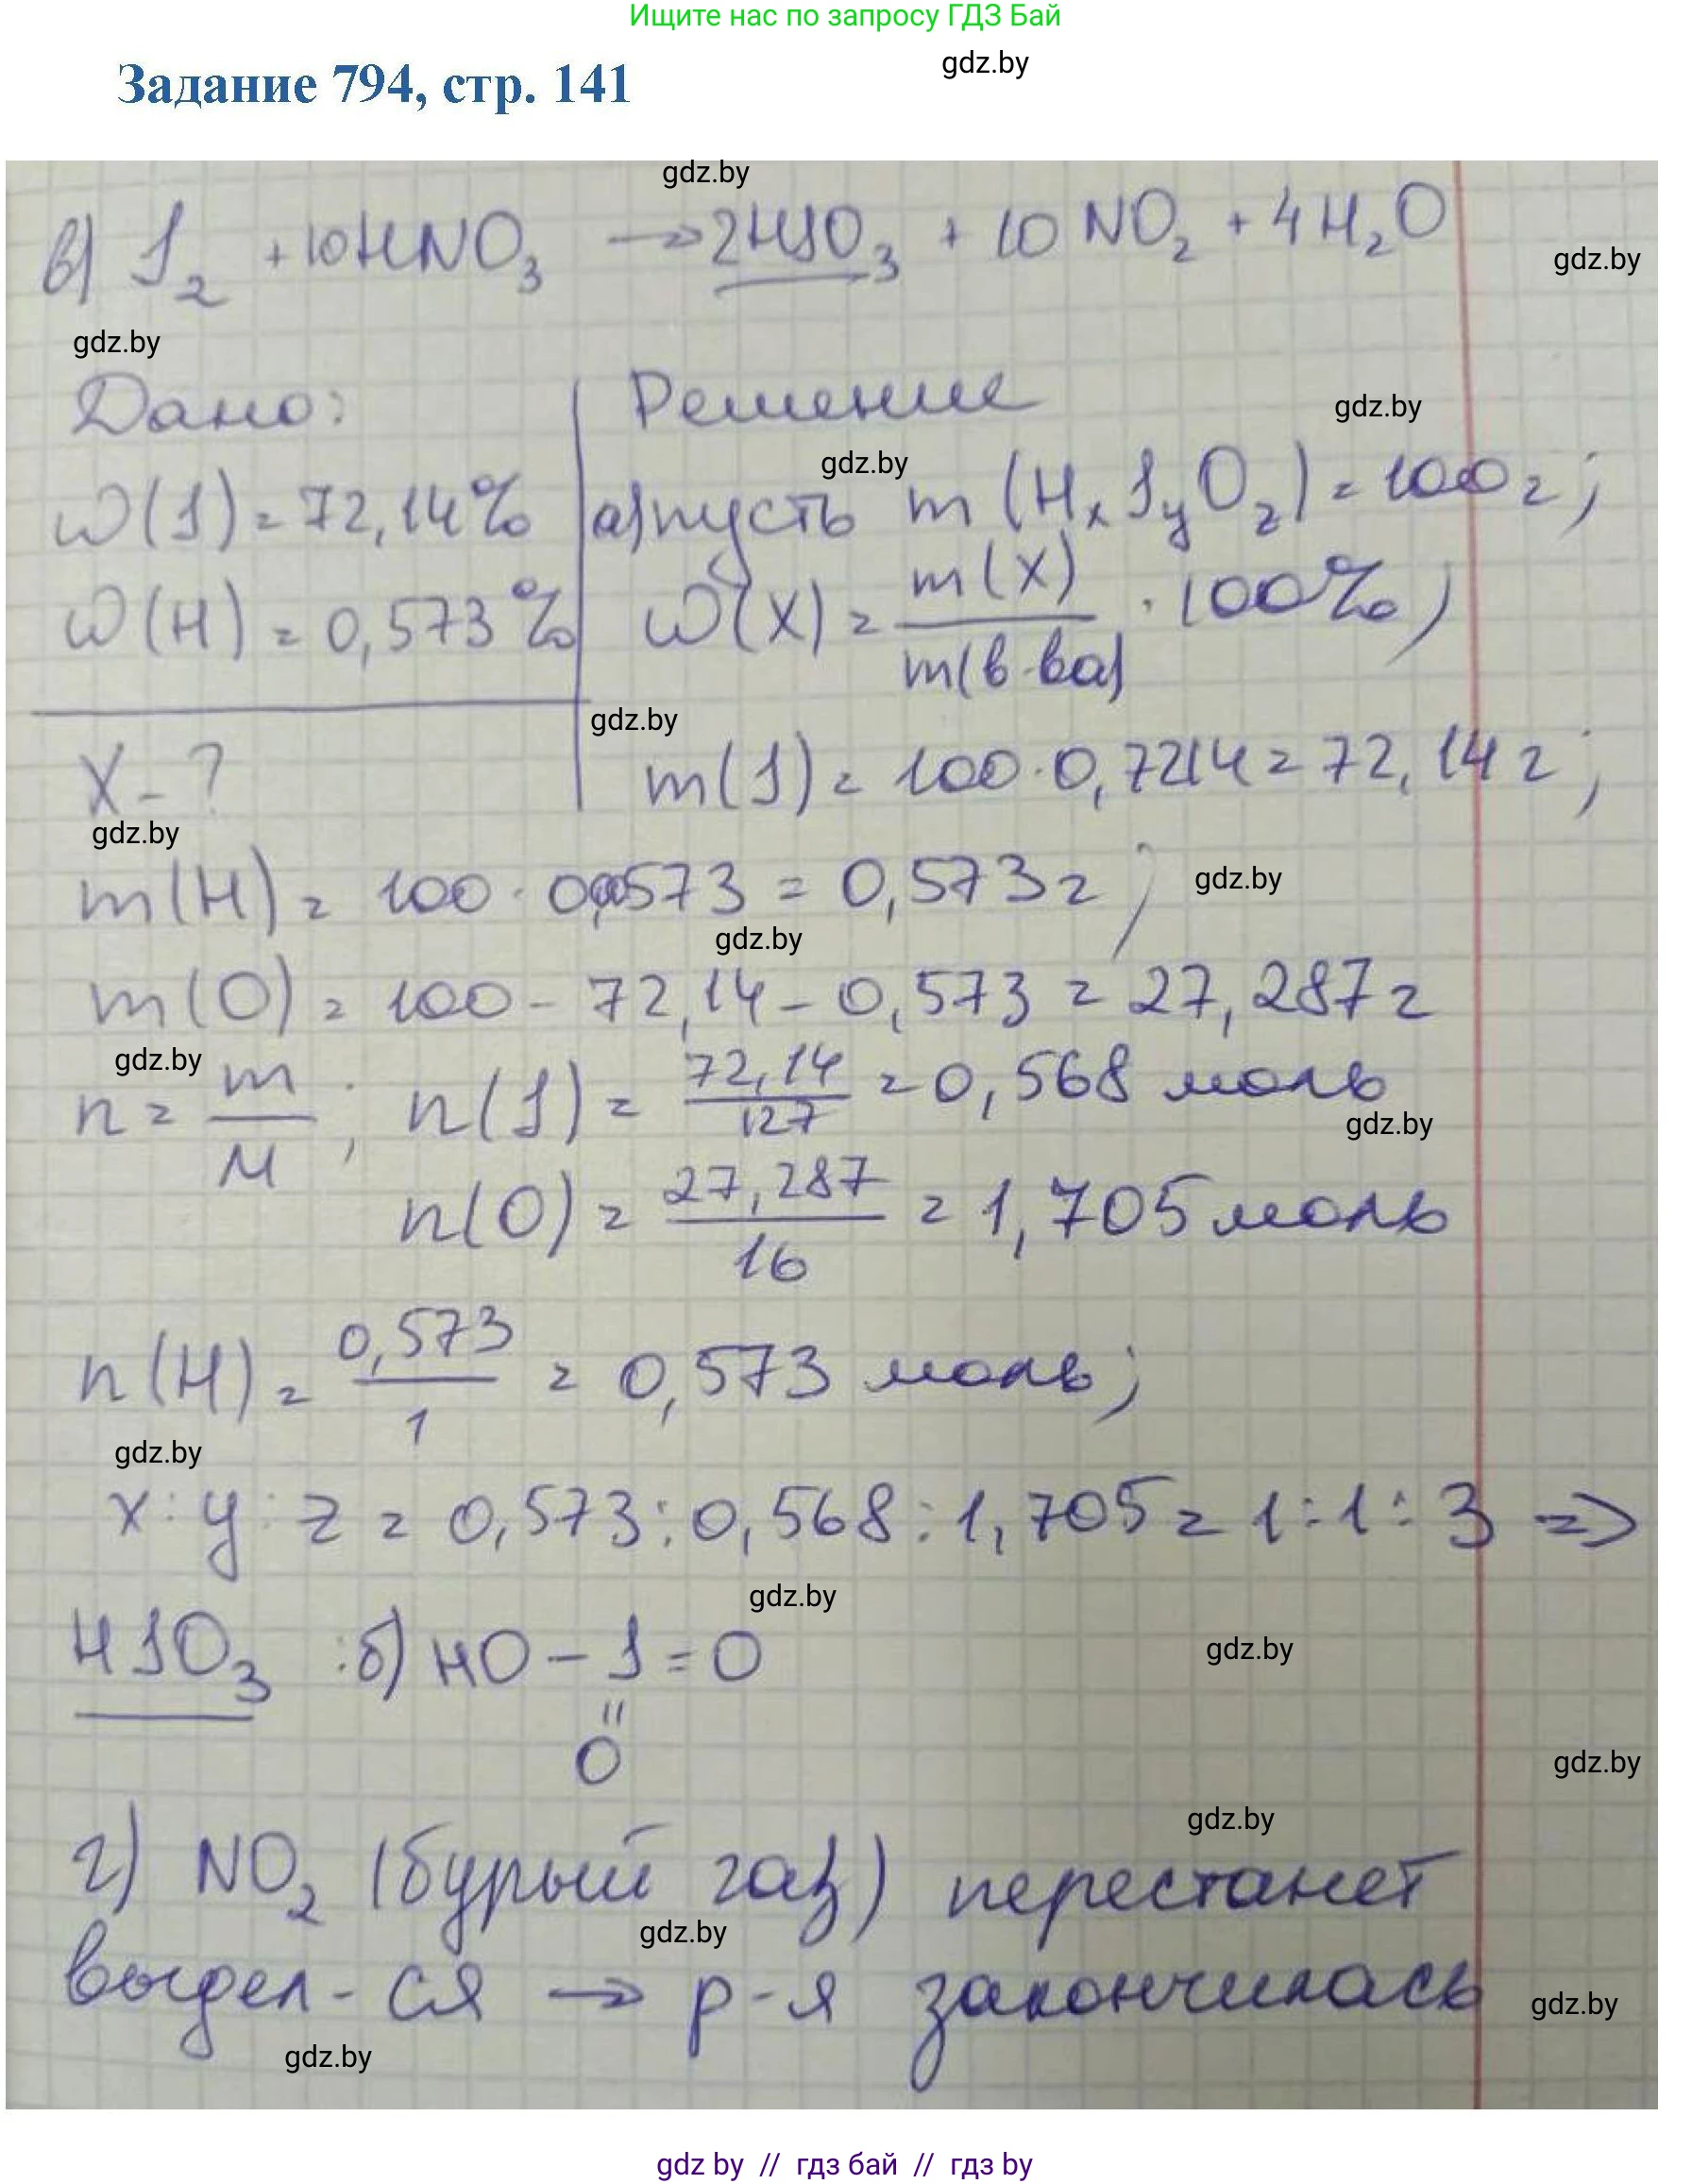 Ищите нас по запросу ГДЗ Бай
gdz.by
Задание 794, стр. 141
gdz.by
в) J₂ + 10HNO₃ → 2HJO₃ + 10 NO₂ + 4H₂O
gdz.by
gdz.by
Дано: Решение
gdz.by
gdz.by
ω(J) = 72,14% а) пусть m (HₓJᵧO_z) = 100 г;
ω(H) = 0,573% ω(X) = m(X) / m(в-ва) · 100%;
gdz.by
X - ? m(J) = 100 · 0,7214 = 72,14 г;
gdz.by
m(H) = 100 · 0,00573 = 0,573 г;
gdz.by
gdz.by
m(O) = 100 - 72,14 - 0,573 = 27,287 г
gdz.by
n = m / M; n(J) = 72,14 / 127 = 0,568 моль
gdz.by
n(O) = 27,287 / 16 = 1,705 моль
n(H) = 0,573 / 1 = 0,573 моль;
gdz.by
x : y : z = 0,573 : 0,568 : 1,705 = 1 : 1 : 3 =>
gdz.by
HJO₃ ; б) HO - J = O
gdz.by
=
O
gdz.by
gdz.by
г) NO₂ (бурый газ) перестанет
gdz.by
выдел-ся → р-я закончилась
gdz.by
gdz.by
gdz by // гдз бай // гдз by